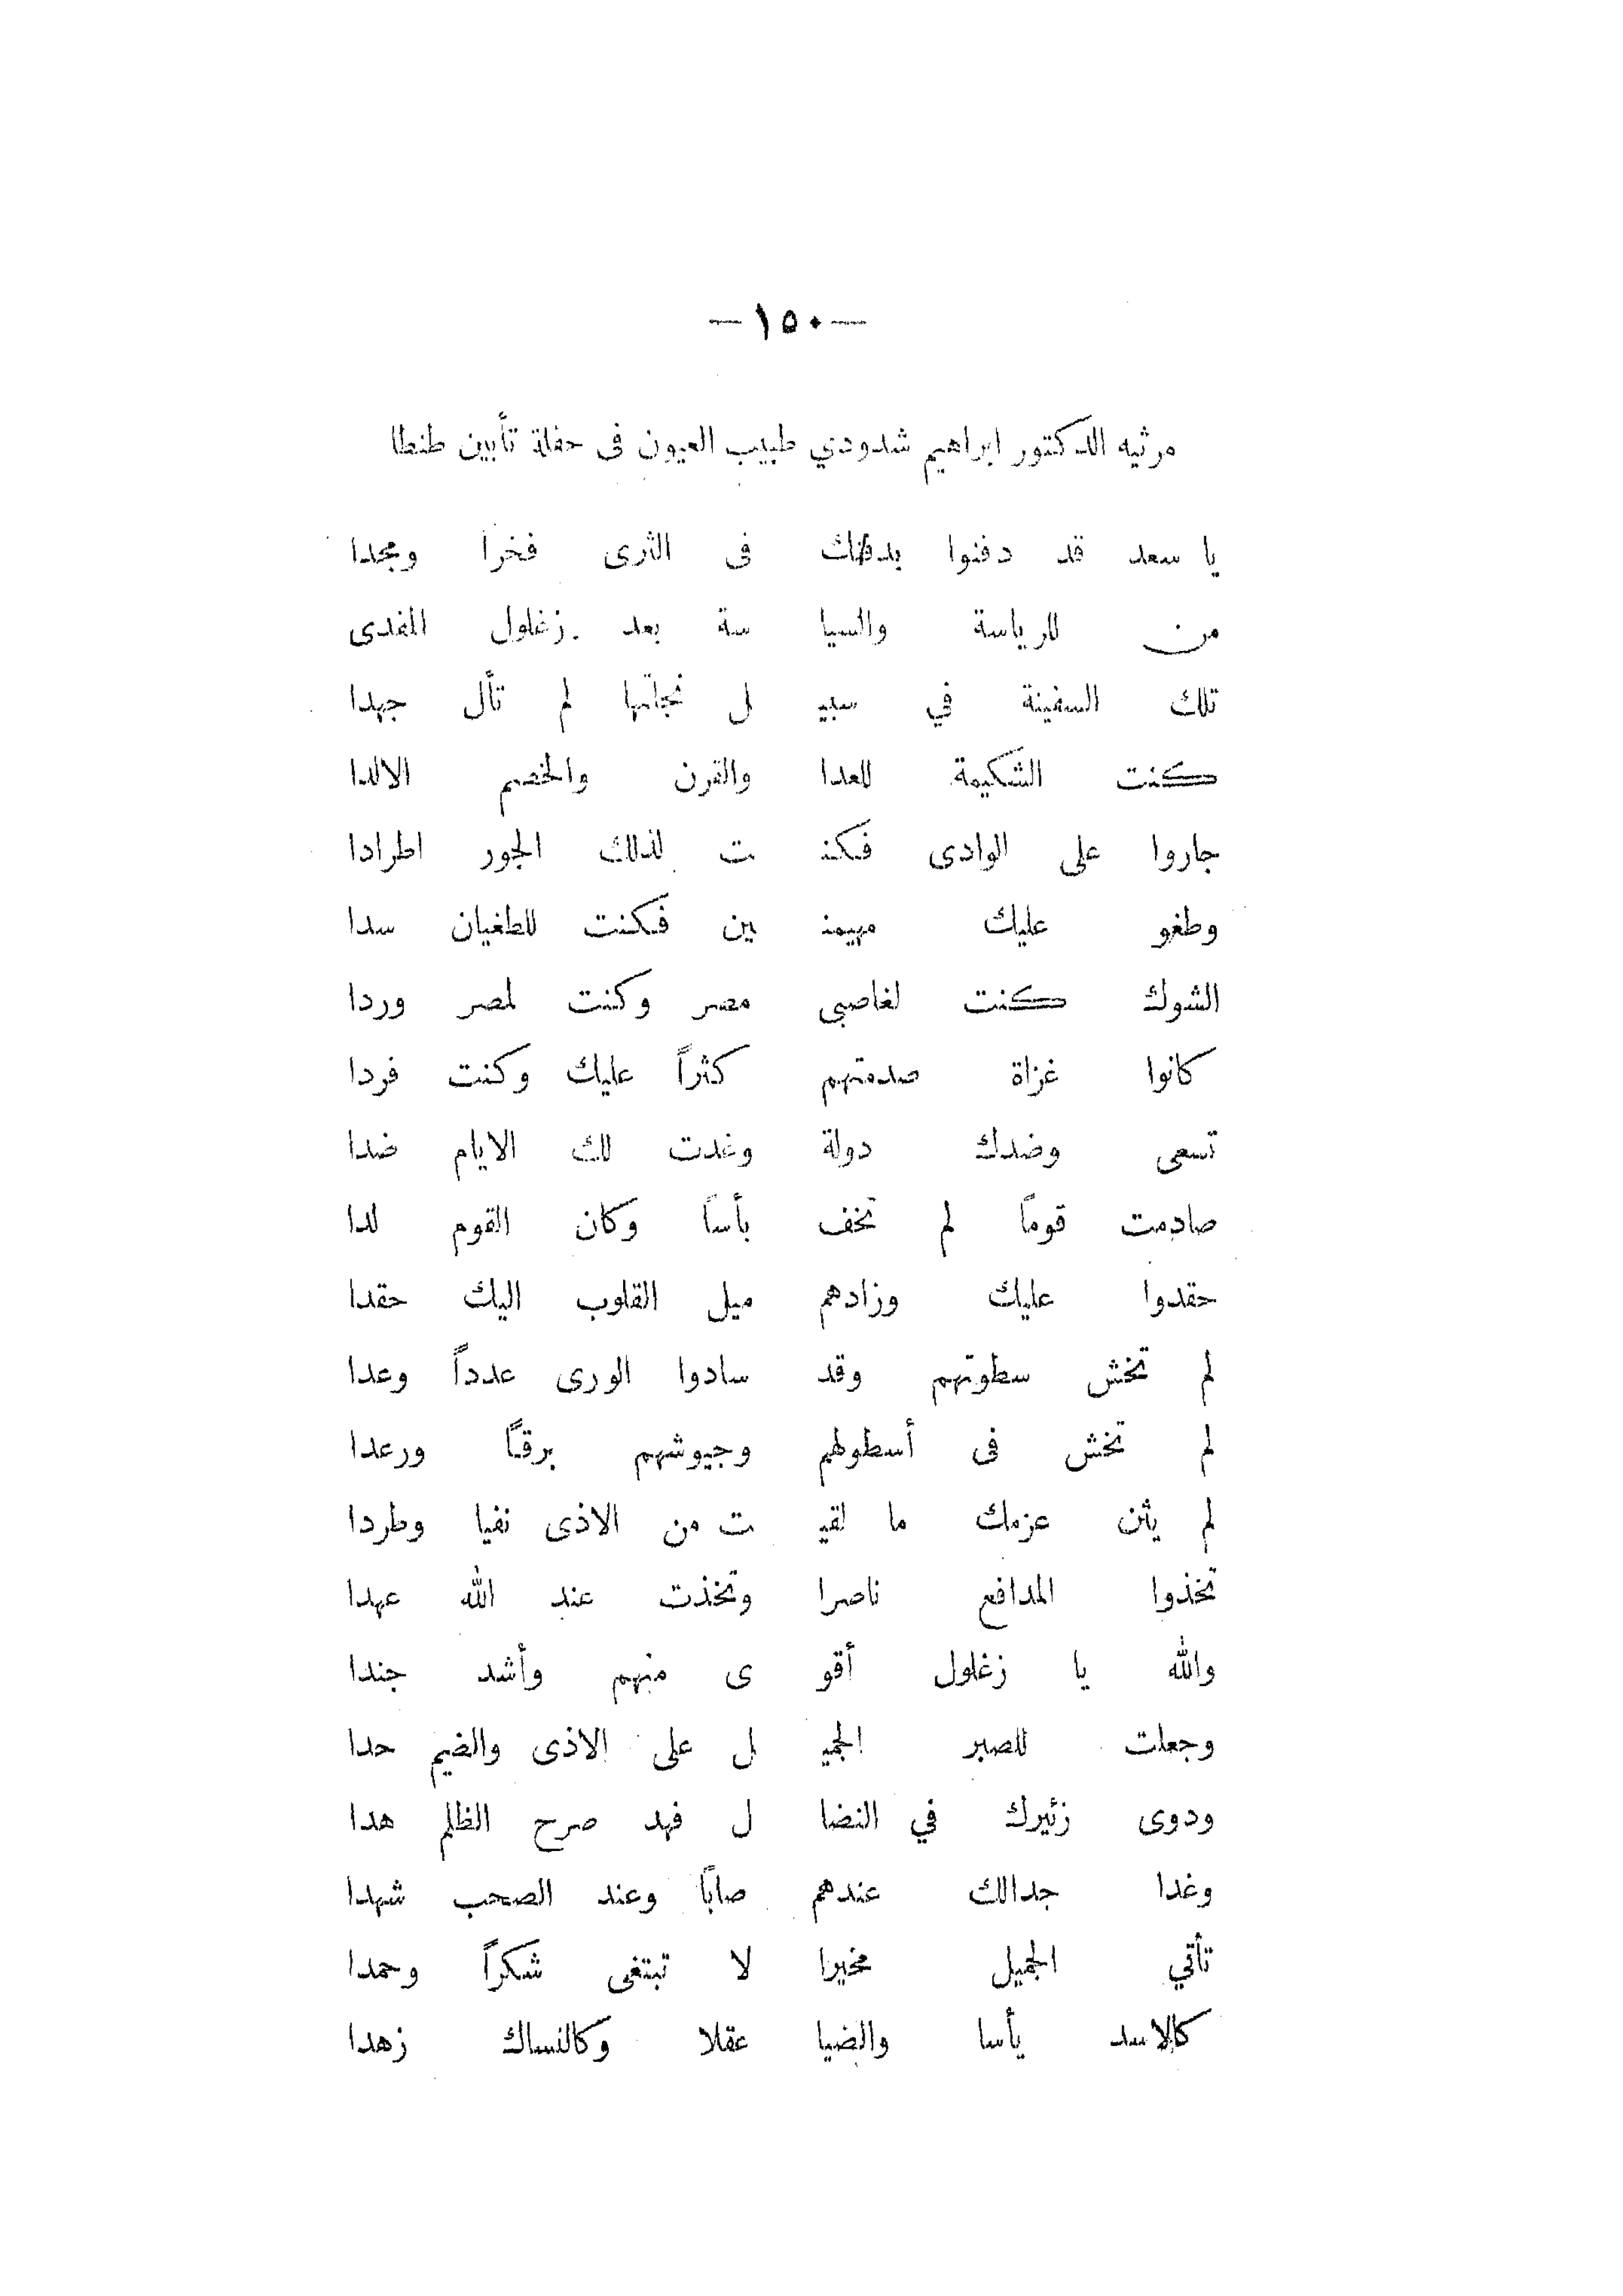 —١٥٠—
مرثيه الدكتور ابراهيم شدودي طبيب العيون فى حفلة تأبين طنطا
يا سعد قد دفنوا بدفنك فى الثرى فخرا ومجدا
من للرياسة والسيا سة بعد زغلول المفدى
تلك السفينة في سبيـ ل نجاتها لم تأل جهدا
كنت الشكيمة للعدا والقرن والخصم الالدا
جاروا على الوادى فكنـ ت لذلك الجور اطرادا
وطغو عليك مهيمنـ ين فكنت للطغيان سدا
الشوك كنت لغاصبى مصر وكنت لمصر وردا
كانوا غزاة صدمتهم كثراً عليك وكنت فردا
تسعى وضدك دولة وغدت لك الايام ضدا
صادمت قومًا لم تخف بأساً وكان القوم لدا
حقدوا عليك وزادهم ميل القلوب اليك حقدا
لم تخش سطوتهم وقد سادوا الورى عدداً وعدا
لم تخش فى أسطولهم وجيوشهم برقاً ورعدا
لم يثن عزمك ما لقيـ ت من الاذى نفيا وطردا
تخذوا المدافع ناصرا وتخذت عند الله عهدا
والله يا زغلول أقو ى منهم وأشد جندا
وجعلت للصبر الجميـ ل على الاذى والضيم حدا
ودوى زئيرك في النضا ل فهد صرح الظلم هدا
وغدا جدالك عندهم صابًا وعند الصحب شهدا
تأتي الجميل مخيرا لا تبتغى شكراً وحمدا
كالاسد يأسا والضيا عقلا وكالنساك زهدا